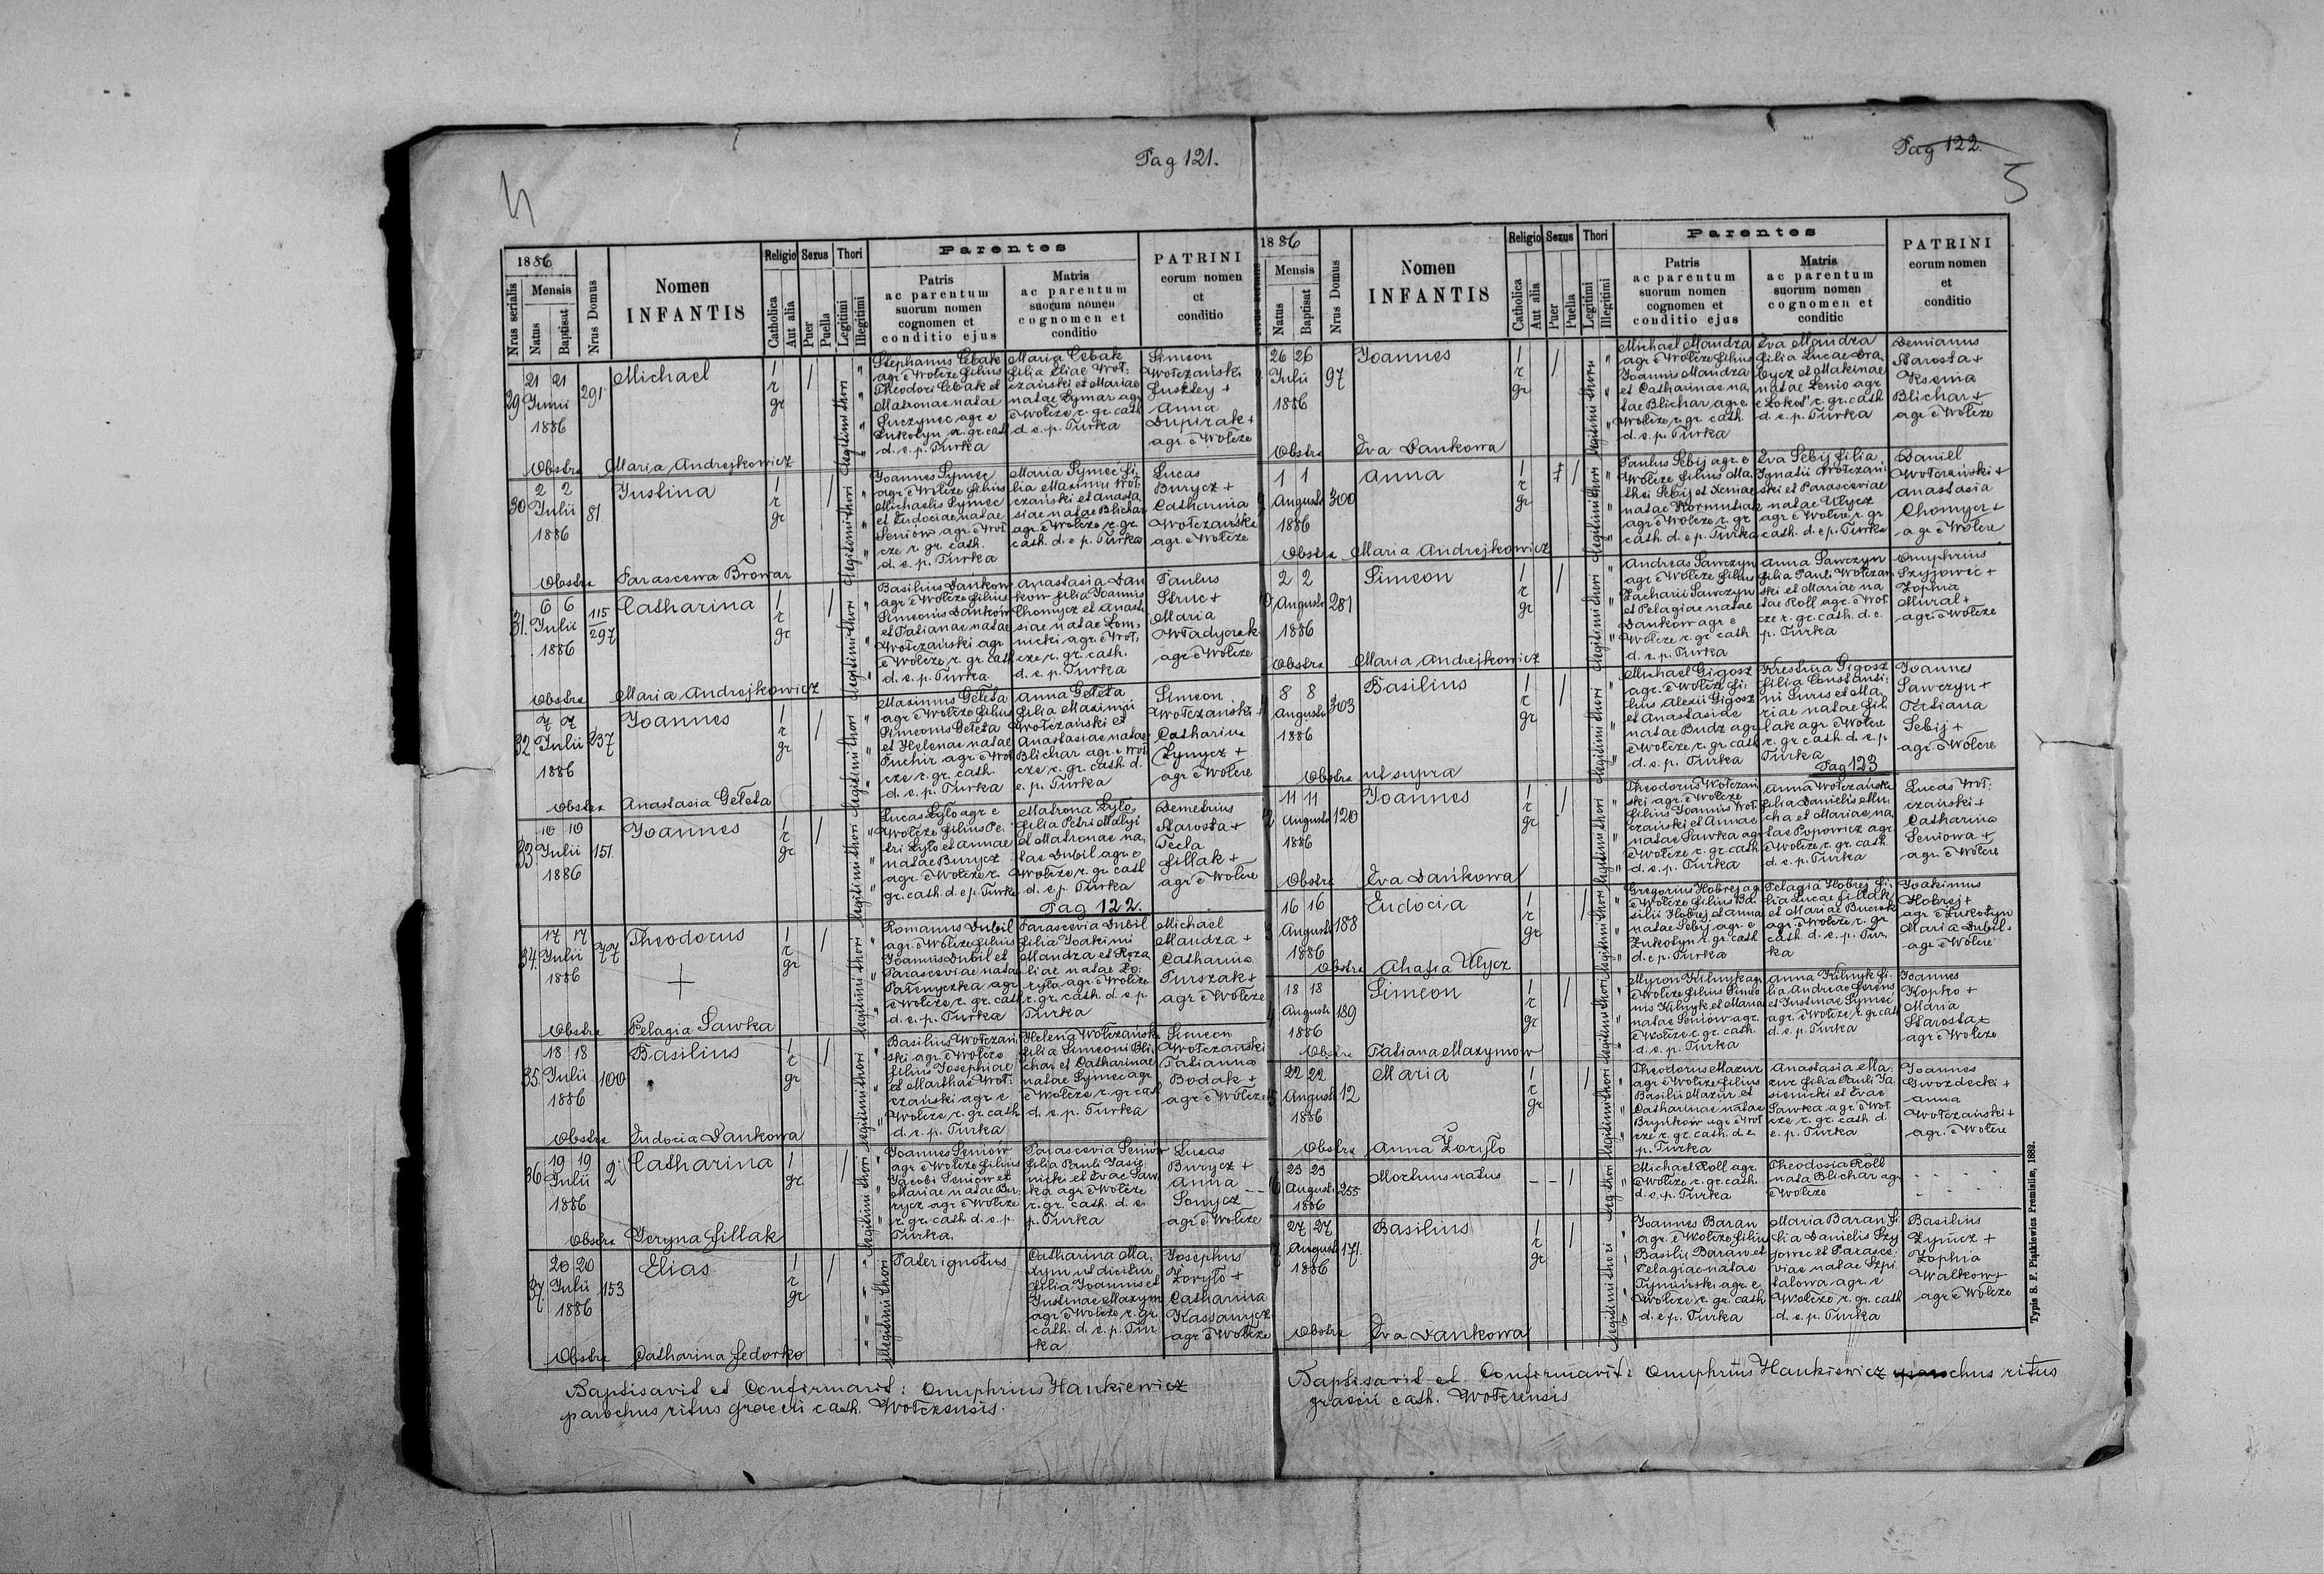 Pag 121.
1886
Nrus serialis
Mensis
Natus
Baptisat
Nrus Domus
Nomen
INFANTIS
Religio
Catholica
Aut alia
Sexus
Puer
Puella
Thori
Legitimi
Illegitimi
Parentes
Patris
ac parentum
suorum nomen
cognomen et
conditio ejus
Matris
ac parentum
suorum nomen
cognomen et
conditio
PATRINI
eorum nomen
et
conditio
29
21 21
Junii
1886
291
Michael
r
gr
legitimi thori
Stephanus Cebak
agr e Wołcze filius
Theodori Cebak et
Matronae natae
Łuczyniec agr e
Łukotyn r. gr. cath
d. e. p. Turka
Maria Cebak
filia Eliae Woł:
czański et Mariae
natae Zymar agr
e Wołcze r. gr. cath
d. e. p. Turka
Simeon
Wołczański
Anna
Dupirak +
agr. e Wołcze
Obstre Maria Andrejkowicz
30
2 2
Julii
1886
81
Justina
r
gr
legitimi thori
Joannes Symec
agr. e Wołcze filius
Michaelis Symec
et Eudociae natae
Seniów agr. e Woł
cze r. gr. cath.
d. e. p. Turka
Maria Symec fi:
lia Maximii Woł:
czański et Anasta
siae natae Blichar
agr. e Wołcze r. gr.
cath. d. e p. Turka
Lucas
Burycz +
Catharina
Wołczańska
agr. e Wołcze
Obstre Parascewa Browar
31.
6 6
Julii
1886
115
297
Catharina
r
gr
legitimi thori
Basilius Dańkow
agr e Wołcze filius
Simeonis Dańków
et Tatianae natae
Wołczański agr
e Wołcze r. gr. cath
d. e. p. Turka
Anastasia Dań
ków filia Joannis
Chomycz et Anast
siae natae Łom,
nicki agr. e Woł,
cze r. gr. cath.
d. e. p. Turka
Paulus
Struc +
Maria
Władyczak
agr e Wołcze
Obstre Maria Andrejkowicz
32
7 7
Julii
1886
237
Joannes
r
gr
legitimi thori
Maximus Geleta
agr e Wołcze filius
Simeonis Geleta
et Helenae natae
Puchir agr e Woł
cze r. gr. cath.
d. e. p. Turka
Anna Geleta
filia Maximii
Wołczański et
Anastasiae natae
Blichar agr. e Woł
cze r. gr. cath. d.
e. p. Turka
Simeon
Wołczański +
Catharina
Zynycz +
agr e Wołcze
Obstre Anastasia Geleta
33
10 10
Julii
1886
151.
Joannes
r
gr
legitimi thori
Lucas Zyło agr e
Wołcze filius Pe:
tri Zyło et Annae
natae Burycz
agr. e Wołcze r.
gr. cath. d. e p. Turka
Matrona Zyło
filia Petri Małyj
et Matronae na,
tae Dubil agr e
Wołcze r. gr cath
d. e. p. Turka
Demetrius
Starosta +
Tecla
Fillak +
agr e Wołcze
Pag 122.
34.
17 17
Julii
1886
77
Theodorus
r
gr
legitimi thori
Romanus Dubil
agr. e Wołcze filius
Joannis Dubil et
Parasceviae natae
Patenyczka agr
e Wołcze r. gr. cath
d. e. p. Turka
Parascevia Dubil
filia Joakimi
Mandza et Roza
liae natae Zo:
ryło agr. e Wołcze
r. gr. cath. d. e. p.
Turka
Michael
Mandza +
Catharina
Turszak +
agr e Wołcze
Obstre Pelagia Sawka
35.
18 18
Julii
1886
100
Basilius
r
gr
legitimi thori
Basilius Wołczań:
ski agr. e Wołcze
filius Josephiae
et Marthae Woł:
czański agr. e
Wołcze r. gr. cath
d. e. p. Turka
Helena Wołczańska
filia Simeoni Bli:
char et Catharinae
natae Symec agr
e Wołcze r. gr cath
d. e. p. Turka
Simeon
Wołczański
Tatianna
Bodak +
agr e Wołcze
Obstre Eudocia Dankowa
36
19 19
Julii
1886
2
Catharina
gr
legitimi thori
Joannes Seniów
agr e Wołcze filius
Jacobi Seniów et
Mariae natae Bu,
rycz agr e Wołcze
r. gr. cath. d. e. p.
Turka.
Parascevia Seniów
filia Pauli Jasie:
nicki et Evae Saw
ka agr e Wołcze
r. gr. cath. d. e.
p. Turka
Lucas
Burycz +
Anna
Sonycz
agr e Wołcze
Obstre Jeryna Fillak
37.
20 20
Julii
1886
153
Elias
r
gr
illegitimi thori
Pater ignotus
Catharina Ma,
zym ut dicitur
filia Joannis et
Justinae Mazym
agr e Wołcze r. gr.
cath. d. e. p. Tur
ka
Josephus
Zoryło +
Catharina
Kassanycz
agr e Wołcze
Obstre Catharina Fedorko
Baptisavit et Confirmavit: Onuphrius Hankiewicz
parochus ritus graeci cath. Wołczensis.
Pag 122.
5
1886
Mensis
Natus
Baptisat
Nrus Domus
Nomen
INFANTIS
Religio
Catholica
Aut alia
Sexus
Puer
Puella
Thori
Legitimi
Illegitimi
Parentes
Patris
ac parentum
suorum nomen
cognomen et
conditio ejus
Matris
ac parentum
suorum nomen
cognomen et
conditio
PATRINI
eorum nomen
et
conditio
26 26
Julii
1886
97
Joannes
r
gr
legitimi thori
Michael Mandza
agr. e Wołcze filius
Joannis Mandza
et Catharinae na,
tae Blichar agr e
Wołcze r. gr. cath.
d. e. p. Turka
Eva Mandza
filia Lucae Dra,
bycz et Makinae
natae Lenio agr
e Łokoć r. gr. cath
d. e. p. Turka
Demianus
Starosta +
Ksenia
Blichar +
agr e Wołcze
Obstre Eva Dankowa
1 1
Augusti
1886
300
Anna
r
gr
legitimi thori
Paulus Sebij agr. e
Wołcze filius Ma,
thei Sebij et Xeniae
natae Kormutiak
agr e Wołcze r. gr
cath d. e p. Turka
Eva Sebij filia
Ignatii Wołczań:
ski et Parasceviae
natae Ułycz
agr e Wołcze r. gr
cath. d. e p. Turka
Daniel
Wołczański +
Anastasia
Chomycz +
agr e Wołcze
Obstre Maria Andrejkowicz
2 2
Augusti
1886
281
Simeon
r
gr
legitimi thori
Andreas Sawczyn
agr e Wołcze filius
Zacharii Sawczyn
et Pelagiae natae
Dankow agr e
Wołcze r. gr cath
d. e. p. Turka
Anna Sawczyn
filia Pauli Wołczań
ski et Mariae na
tae Roll agr. e Woł
cze r. gr. cath. d. e.
p. Turka
Onuphrius
Szyjowic +
Zophia
Mural +
agr. e Wołcze
Obstre Maria Andrejkowicz
8 8
Augusti
1886
303
Basilius
r
gr
legitimi thori
Michael Gigosz
agr. e Wołcze fi:
lius Alexii Gigosz
et Anastasiae
natae Budz agr
e Wołcze r. gr. cath
d. e. p. Turka
Krestina Gigosz
filia Constanti:
ni Surts et Ma,
riae natae Fil
lak agr e Wołcze
r. gr cath. d. e. p
Turka
Joannes
Sawczyn +
Tatiana
Sebij +
agr. e Wołcze
Pag 123
Obstre ut supra
11 11
Augusti
1886
120
Joannes
r
gr
legitimi thori
Theodorus Wołczań
ski agr. e Wołcze
filius Joannis Woł
czański et Annae
natae Sawka agr
e Wołcze r. gr. cath
d. e. p. Turka
Anna Wołczańska
filia Danielis Mu,
cha et Mariae na,
tae Popowicz agr.
e Wołcze r. gr. cath.
d. e. p. Turka
Lucas Woł:
czański +
Catharina
Seniowa +
agr. e Wołcze
Obstre Eva Dańkowa
16 16
Augusti
1886
188
Eudocia
r
gr
legitimi thori
Gregorius Hobrej ag
e Wołcze filius Ba,
silii Hobrej et Anna
natae Sebij agr e
Łukotyn r. gr. cath
d. e p. Turka
Pelagia Hobrej fi:
lia Lucae Fillak
et Mariae Bucwak
agr. e Wołcze r. gr
cath. d. e. p. Tur,
ka
Joakimus
Hobrej +
agr e Łukotyn
Maria Dubil +
agr e Wołcze
Obstre Ahafia Ułycz
18 18
Augusti
1886
189
Simeon
r
gr
legitimi thori
Myron Kilnyk agr
e Wołcze filius Simeo
nis Kilnyk et Maria
natae Seniów agr.
e Wołcze r. gr. cath.
d. e. p. Turka
Anna Kilnyk fi:
lia Andreae Lorens
et Justinae Symec
agr. e Wołcze r. gr cath
d. e. p. Turka
Joannes
Kopko +
Maria
Starosta +
agr e Wołcze
Obstre Tatiana Mazymow
22 22
Augusti
1886
12
Maria
r
gr
legitimi thori
Theodorus Mazur
agr e Wołcze filius
Basilii Mazur et
Catharinae natae
Bryńkow agr e Woł
cze r. gr. cath. d. e.
p. Turka
Anastasia Ma,
zur filia Pauli Ja
sienicki et Evae
Sawka agr e Woł
cze r. gr. cath d.
e. p. Turka
Joannes
Gwozdecki +
Anna
Wołczański +
agr. e Wołcze
Obstre Anna Zoryło
23 23
Augusti
1886
255
Morthus natus
leg thori
Michael Roll agr.
e Wołcze r. gr. cath.
d. e. p. Turka
Theodosia Roll
nata Blichar agr
e Wołcze
27 27
Augusti
1886
171.
Basilius
r
gr
legitimi thori
Joannes Baran
agr. e Wołcze filiu
Basilii Baran et
Pelagiae natae
Tymiński agr. e
Wołcze r. gr. cath
d. e p. Turka
Maria Baran fi
lia Danielis Szy
jowec et Parasce:
viae natae Szpi
talowa agr. e
Wołcze r. gr. cath
d. e. p. Turka
Basilius
Zymcz +
Zophia
Walkow +
agr e Wołcze
Obstre Eva Dankowa
Baptisavit et Confirmavit: Onuphrius Hankiewicz parochus ritus
graeci cath. Wołczensis
Typis S. F. Piątkiewicz Premisliæ, 1882.